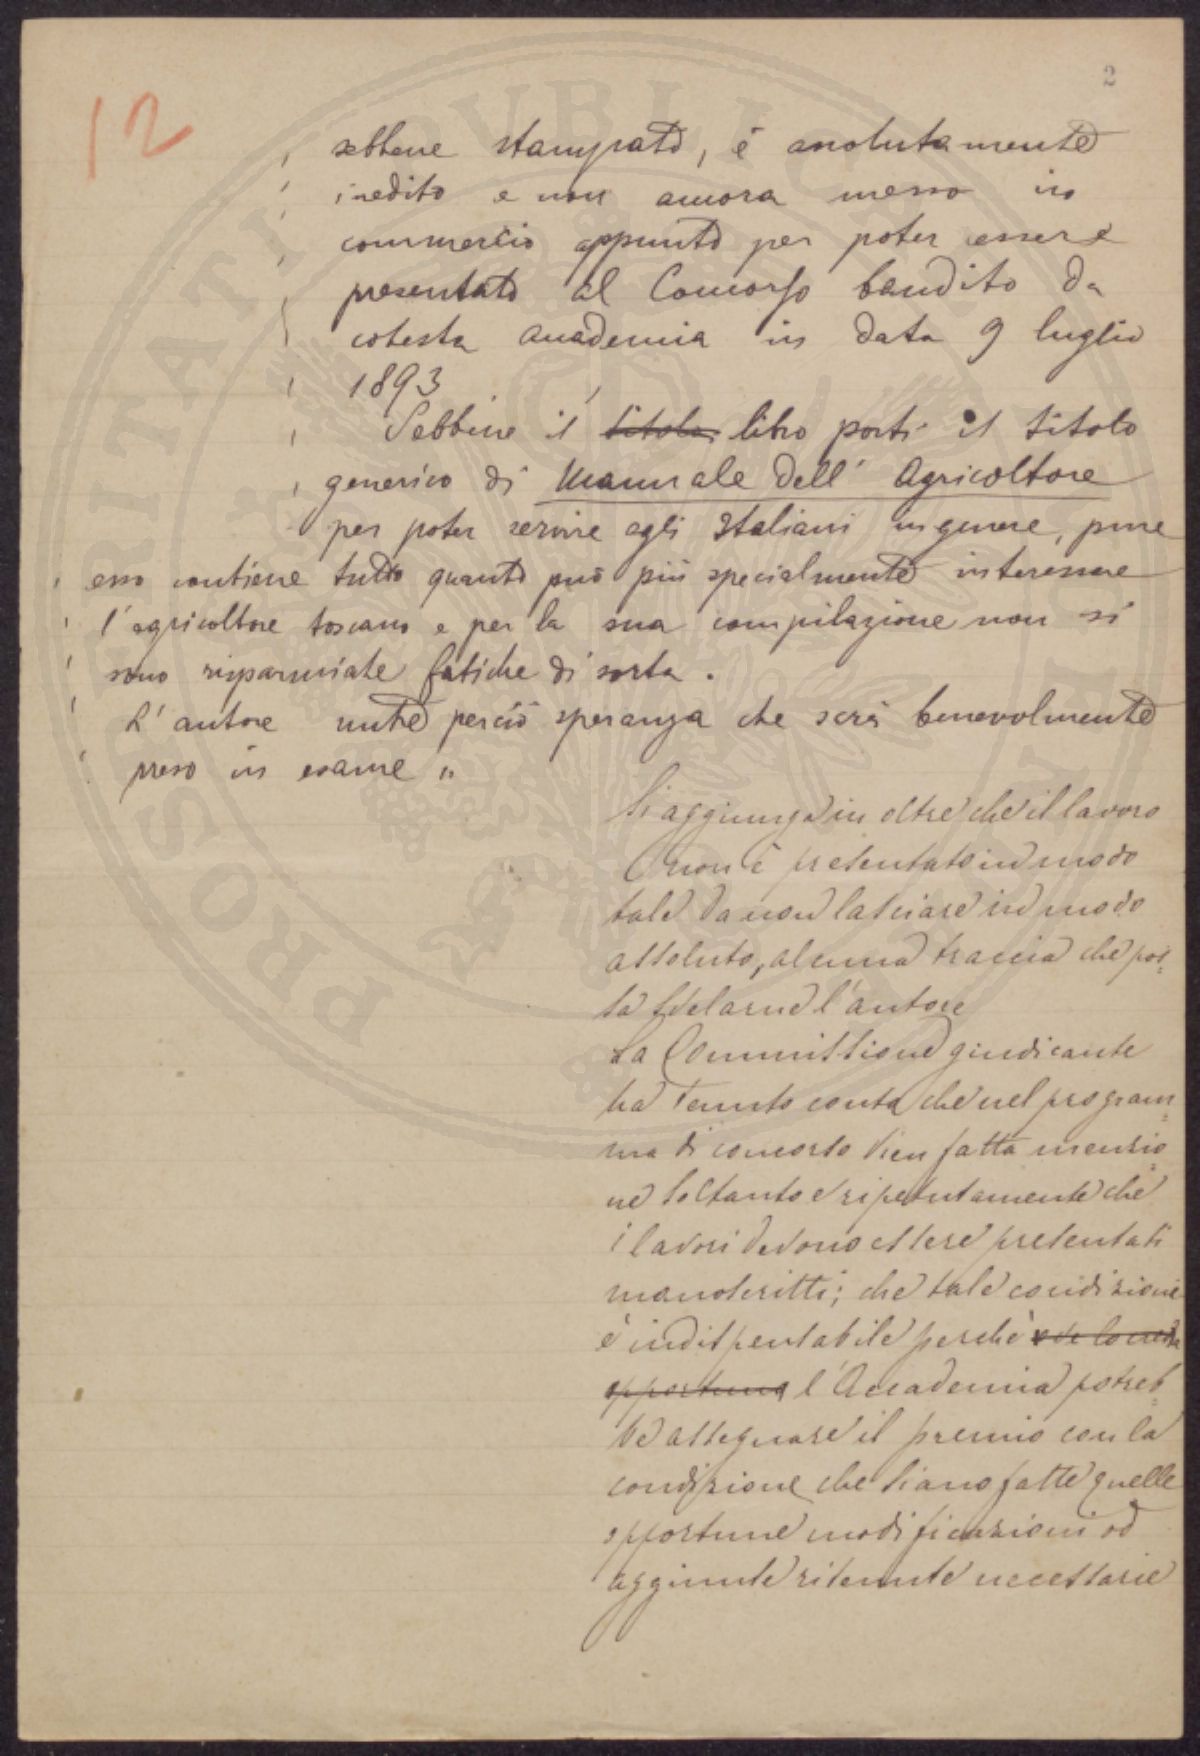 2
12
sebbene stampato, è assolutamente
inedito e non ancora messo in
commercio appunto per poter essere
presentato al Concorso bandito da
cotesta accademia in data 9 luglio
1893
Sebbene il titolo libro porti il titolo
generico di Manuale dell' Agricoltore
per poter servire agli Italiani in genere, pure
esso contiene tutto quanto può più specialmente interessare
l'agricoltore toscano e per la sua compilazione non si
sono risparmiate fatiche di sorta.
L'autore nutre perciò speranza che sarà benevolmente
preso in esame "
Si aggiunga in oltre che il lavoro
non è presentato in modo
tale da non lasciare in modo
assoluto, alcuna traccia che pos=
sa svelarne l'autore
La Commissione giudicante
ha tenuto conto che nel program=
ma di concorso vien fatta menzio=
ne soltanto e ripetutamente che
i lavori devono essere presentati
manoscritti; che tale condizione
è indispensabile perchè
opportuno l'Accademia potreb=
be assegnare il premio con la
condizione che siano fatte quelle
opportune modificazioni od
aggiunte ritenute necessarie
PROSPERITATI PUBLICAE